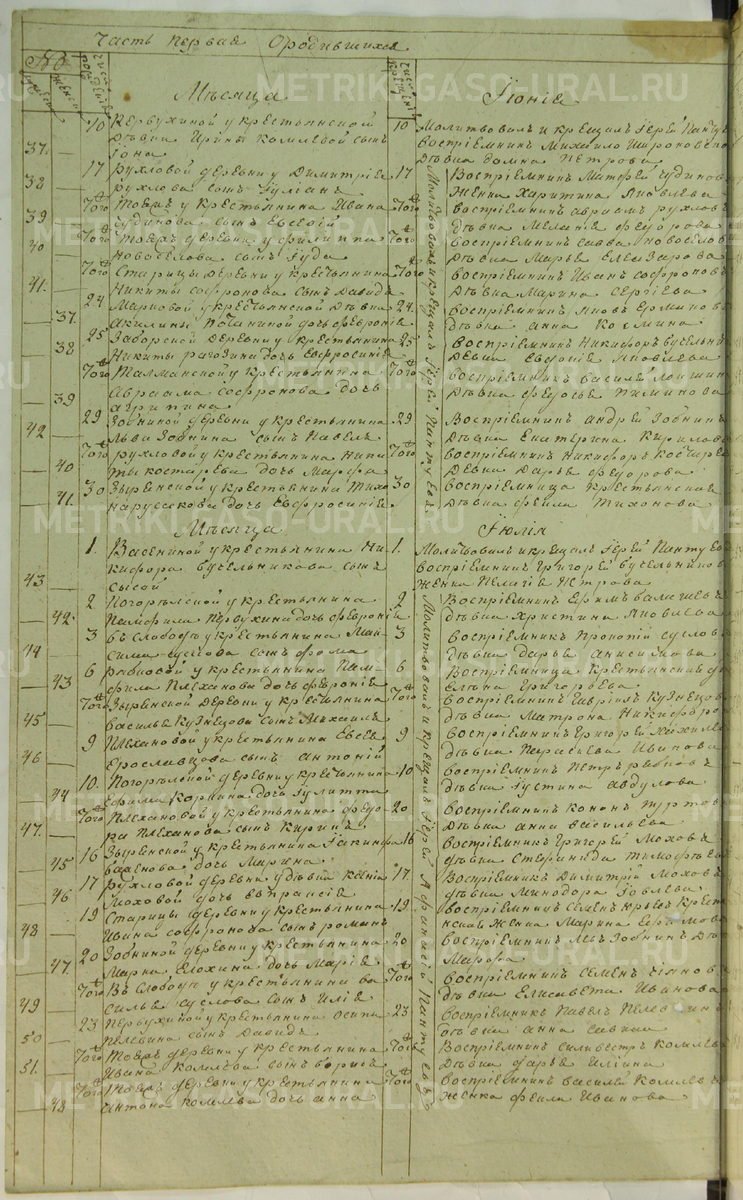 Часть Первая О родившихся
Мѣсяца
Іюнія
10 Первухиной у крестьянской
дѣвки Ирины Комлевой сынъ
37. Іона
10 Молитвовалъ и крещалъ Іерей
воспріемникъ Михайло
дѣвка Домна Петрова
17 Рухловой деревни у Димитрія
38 Рухлова сынъ Іуліанъ
17 Воспріемникъ Матфей Чудинов
женка Харитина Яковлева
Тогож Тояжъ у крестьянина Ивана
39 Чудинова сынъ Евсевій
Тогож воспріемникъ Авраамъ Рухлов
дѣвка Меланія Феодорова
Тогож Тояжъ деревни у Филиппа
40 Новоселова сынъ Іуда
Тогож воспріемникъ Савва Новоселов
дѣвка Марья Елеазарова
Тогож Старицы деревни у крестьянина
41. Никиты Софронова сынъ Давидъ
Тогож воспріемникъ Иванъ Софронов
дѣвка Марина Сергіева
24 Марковой у крестьянской дѣвки
37. Акилины дочь Февронія
24. воспріемникъ Яковъ
дѣвка Анна Козмина
25 Заборской деревни у крестьянина
38 Никиты Рагозина дочь Евфросинія
25 воспріемникъ Никифоръ Бусельни
дѣвка Евдокія Яковлева
Тогож Талманской у крестьянина
Авраама Софронова дочь
39 Агрипина
Тогож воспріемникъ Василей
дѣвка Федосья
29 Зобниной деревни у крестьянина
42 Льва Зобнина сынъ Павелъ
29 Воспріемникъ Андрей Зобнин
дѣвка Екатерина Кирилова
Тогож Рухловой у крестьянина Ники
40 ты Костарева дочь Марфа
Тогож воспріемникъ Никифоръ Костарев
дѣвка Дарья Феодорова
30 Зырянской у крестьянина Тихо
41. на Русакова дочь Евфросинія
30 воспріемница крестьянская
дѣвка Фекла Тихонова
Молитвовалъ и крещалъ Іерей
Мѣсяца
Іюлія
1. Васениной у крестьянина Ни
кифора Бусельникова сынъ
43 Сысой
1. Молитвовалъ и крещалъ Іерей
воспріемникъ Григорей Бусельников
женка Пелагія Петрова
2 Погорѣлской у крестьянина
42. Памфила Первухина дочь Февронія
2 Воспріемникъ Ефимъ
дѣвка Христина Яковлева
3 въ Слободѣ у крестьянина Мак
44 сима Суслова сынъ Фома
3 воспріемникъ Прокопій Суслов
дѣвка Дарья Анисимова
6 Рябковой у крестьянина Пам
43 фила Плеханова дочь Февронія
6 Воспріемница крестьянская
Григорьева
Тогож Зырянской деревни у крестьянина
45 Василья Кузнецова сынъ Михаилъ
Тогож воспріемникъ Гавріилъ Кузнецов
дѣвка Матрона Никифоро
9 Плехановой у крестьянина Евсев
46 Ерославцова сынъ Антоній
9 воспріемникъ Григорей
дѣвка Парасева Иванова
10. Погорѣлской деревни у крестьянина
44 Ефима Коркина дочь Іулитта
10 воспріемникъ Петръ Рябков
дѣвка Іустина Авдулова
Тогож Плехановой у крестьянина Федо
47. ра Плеханова сынъ Кирикъ
20 воспріемникъ Кононъ
дѣвка Анна Васильева
16 Зырянской у крестьянина Іакинфа
45 дочь Марина
16 воспріемникъ Григорей Мохов
дѣвка Стефанида Тимофѣев
17 Рухловой деревни у дѣвки Ксеніи
46. Моховой дочь Евпраксія
17. Воспріемникъ Димитрій Мохов
дѣвка Минодора Іовлева
19 Старицы деревни у крестьянина
48 Ивана Софронова сынъ Романъ
19 воспріемникъ Семенъ Юрьев крест
женка Марина Ефимова
20 Зобниной деревни у крестьянина
47. Марка Елохина дочь Марія
20 воспріемникъ Левъ Зобнин дѣ
Мавра
Тогож Въ Слободѣ у крестьянина Ва
49 силья Суслова сынъ Илія
Тогож воспріемникъ Семенъ
дѣвка Елисавета Иванова
23 Первухиной у крестьянина Осипа
50 Пелевина сынъ Давидъ
23 воспріемникъ Павелъ Пелевин
дѣвка Анна Савина
Тогож Тояжъ деревни у крестьянина
51. Ивана Комлева сынъ Борисъ
Тогож Воспріемникъ Силивестръ Комлев
дѣвка Дарья Иліина
Тогож Тояжъ деревни у крестьянина
48 Антона Комлева дочь Анна
Тогож воспріемникъ Василей Комлев
женка Фекла Иванова
Молитвовалъ и крещалъ Іерей Афанасій
METRIKI-GASO-URAL.RU